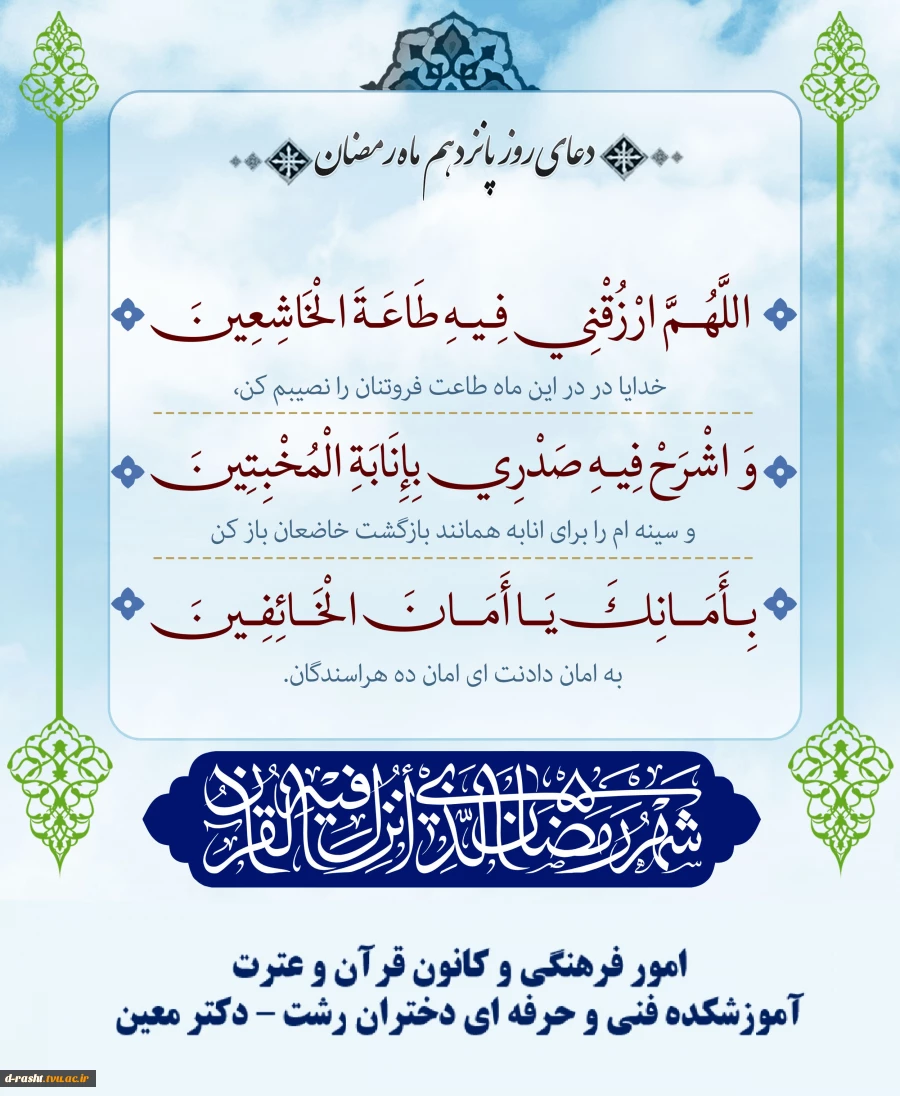 دعای روز پانزدهم ماه رمضان
اللَّهُمَّ ارْزُقْنِي فِيهِ طَاعَةَ الْخَاشِعِينَ
خدایا در در این ماه طاعت فروتنان را نصیبم کن،
وَ اشْرَحْ فِيهِ صَدْرِي بِإِنَابَةِ الْمُخْبِتِينَ
و سینه ام را برای انابه همانند بازگشت خاضعان باز کن
بِأَمَانِكَ يَا أَمَانَ الْخَائِفِينَ
به امان دادنت ای امان ده هراسندگان.
شهر رمضان الذي أنزل فيه القرآن
امور فرهنگی و کانون قرآن و عترت
آموزشکده فنی و حرفه ای دختران رشت - دکتر معین
d-rasht.tvu.ac.ir